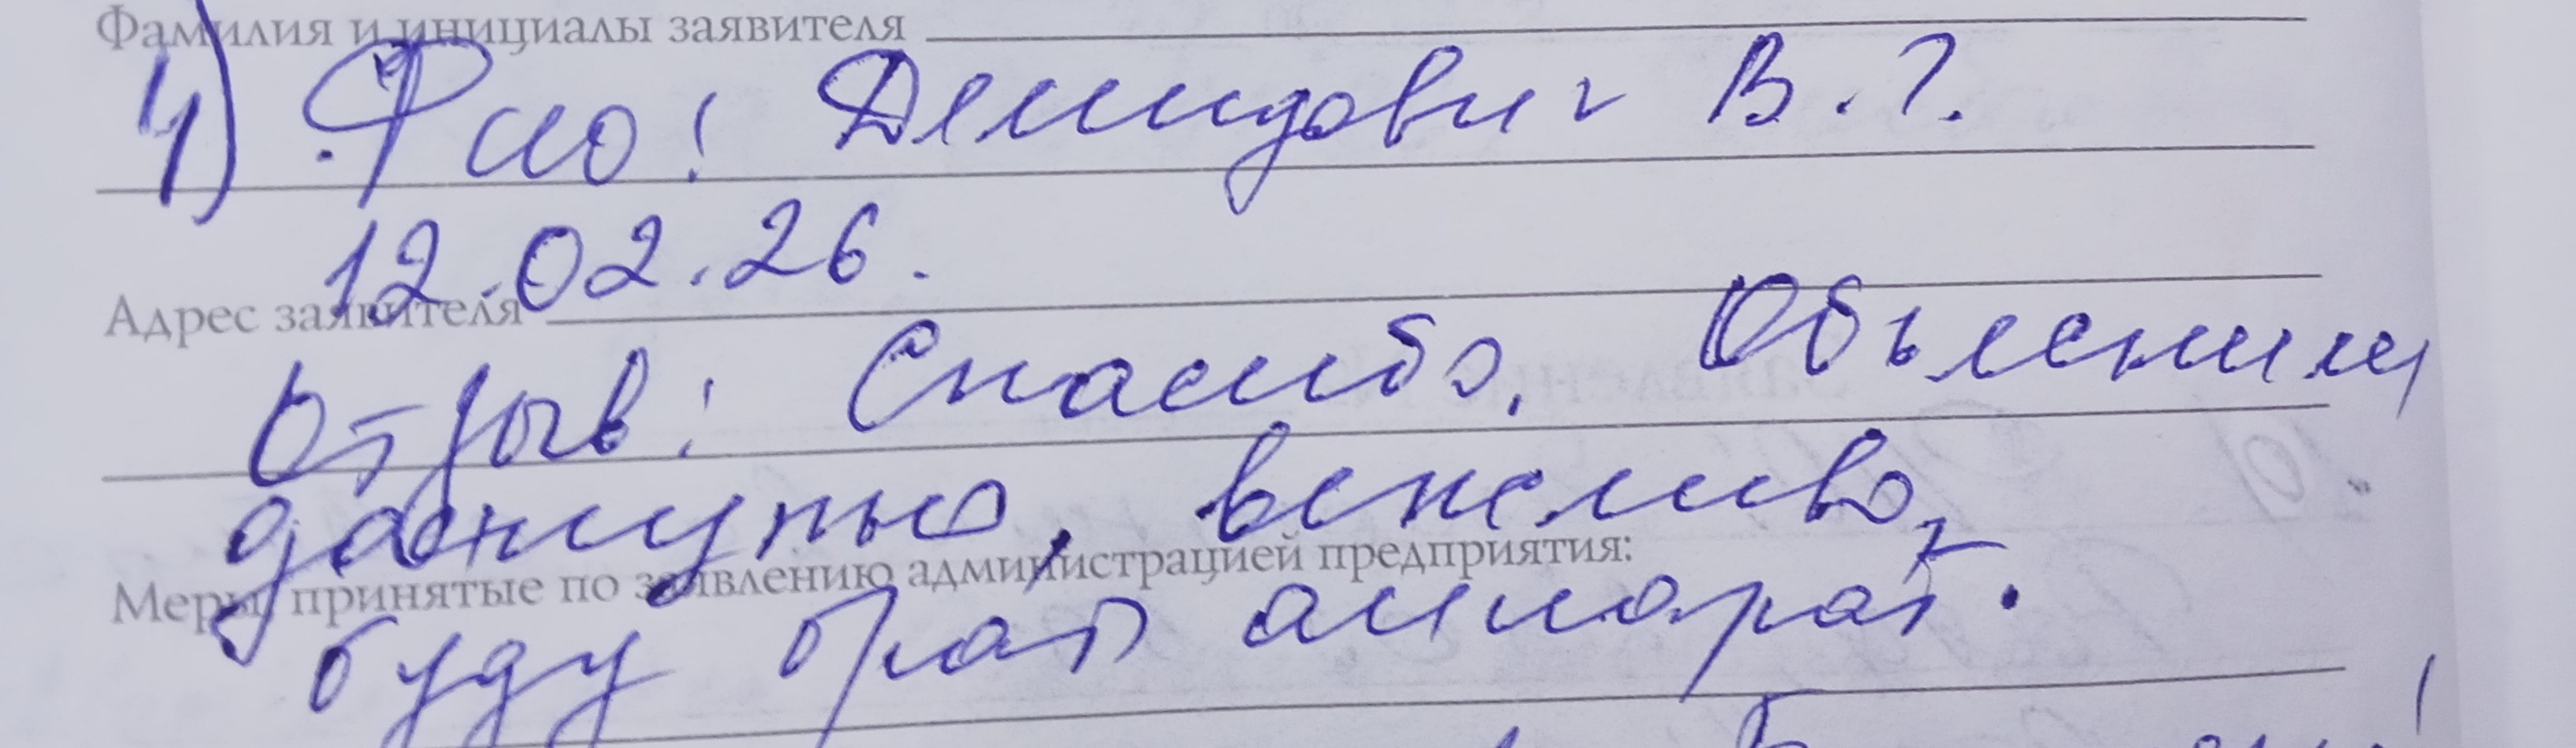 Фамилия и инициалы заявителя
4) Фио: Демидович В.Г.
12.02.26.
Адрес заявителя
Отзыв: Спасибо. Объяснили
доступно, вежливо,
Меры, принятые по заявлению администрацией предприятия:
буду брать аппарат.